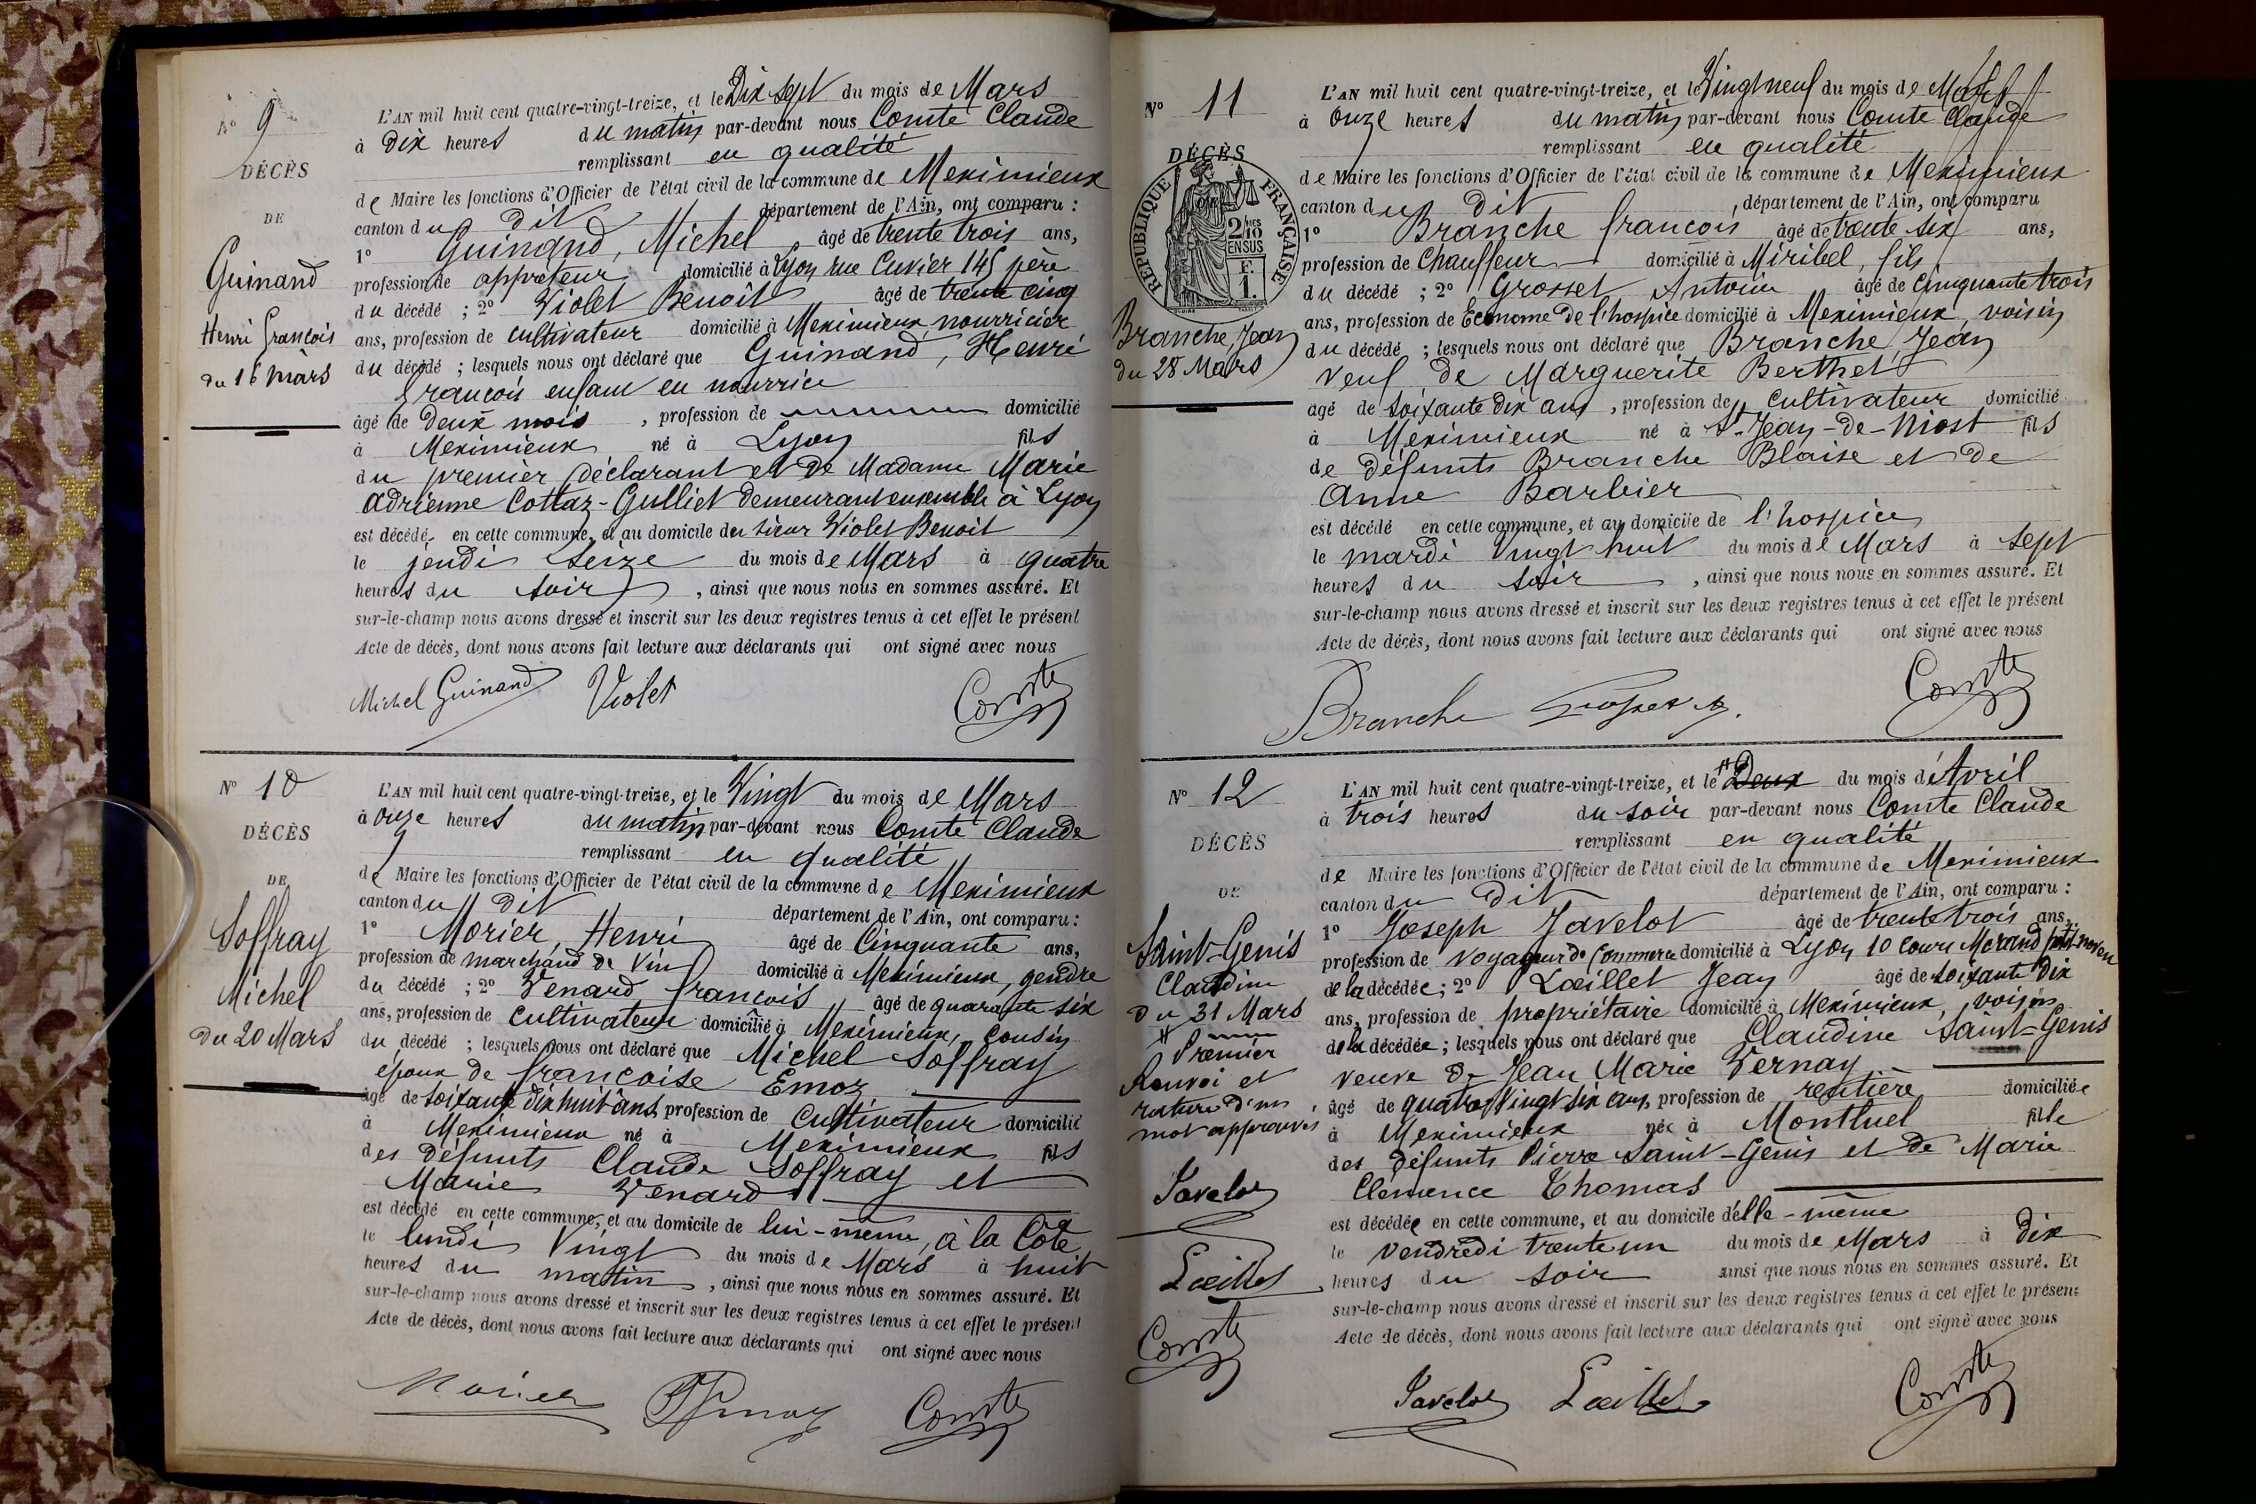 N° 9
DÉCÈS
DE
Guinand
Henri François
du 16 Mars
L'AN mil huit cent quatre-vingt-treize, et le Dix sept du mois de Mars
à dix heures du matin par-devant nous Comte Claude
remplissant en qualité
de Maire les fonctions d'Officier de l'état civil de la commune de Meximieux
canton du dit département de l'Ain, ont comparu :
1° Guinand, Michel âgé de trente trois ans,
profession de appreteur domicilié à Lyon rue Cuvier 145 père
du décédé ; 2° Violet Benoît âgé de trente cinq
ans, profession de cultivateur domicilié à Meximieux nourricier
du décédé ; lesquels nous ont déclaré que Guinand, Henri
François enfant en nourrice
âgé de deux mois , profession de domicilié
à Meximieux né à Lyon fils
du premier déclarant et de Madame Marie
Adrienne Cottaz-Gulliet demeurant ensemble à Lyon
est décédé en cette commune, et au domicile du sieur Violet Benoit
le jeudi seize du mois de Mars à quatre
heures du soir , ainsi que nous nous en sommes assuré. Et
sur-le-champ nous avons dressé et inscrit sur les deux registres tenus à cet effet le présent
Acte de décès, dont nous avons fait lecture aux déclarants qui ont signé avec nous
Michel Guinand Violet Comte
N° 10
DÉCÈS
DE
Soffray
Michel
du 20 Mars
L'AN mil huit cent quatre-vingt-treize, et le Vingt du mois de Mars
à onze heures du matin par-devant nous Comte Claude
remplissant en qualité
de Maire les fonctions d'Officier de l'état civil de la commune de Meximieux
canton du dit département de l'Ain, ont comparu :
1° Morier, Henri âgé de Cinquante ans,
profession de marchand de Vin domicilié à Meximieux, gendre
du décédé ; 2° Venard François âgé de quarante six
ans, profession de cultivateur domicilié à Meximieux, cousin
du décédé ; lesquels nous ont déclaré que Michel Soffray
époux de Françoise Emoz
âgé de soixante dix huit ans, profession de Cultivateur domicilié
à Meximieux né à Meximieux fils
des défunts Claude Soffray et
Marie Venard
est décédé en cette commune, et au domicile de lui-même, à la Côte
le lundi Vingt du mois de Mars à huit
heures du matin , ainsi que nous nous en sommes assuré. Et
sur-le-champ nous avons dressé et inscrit sur les deux registres tenus à cet effet le présent
Acte de décès, dont nous avons fait lecture aux déclarants qui ont signé avec nous
Morier Comte
N° 11
DÉCÈS
RÉPUBLIQUE FRANÇAISE
2/10 EN SUS
F. 1.
Branche Jean
du 28 Mars
L'AN mil huit cent quatre-vingt-treize, et le Vingt neuf du mois de Mars
à onze heures du matin par-devant nous Comte Claude
remplissant en qualité
de Maire les fonctions d'Officier de l'état civil de la commune de Meximieux
canton du dit , département de l'Ain, ont comparu
1° Branche François âgé de trente six ans,
profession de Chauffeur domicilié à Miribel, fils
du décédé ; 2° Grosset Antoine âgé de cinquante trois
ans, profession de Econome de l'hospice domicilié à Meximieux, voisin
du décédé ; lesquels nous ont déclaré que Branche Jean
veuf de Marguerite Berthet
âgé de soixante dix ans , profession de cultivateur domicilié
à Meximieux né à St-Jean-de-Niost fils
de défunts Branche Blaise et de
Anne Barbier
est décédé en cette commune, et au domicile de l'hospice
le mardi Vingt huit du mois de Mars à sept
heures du soir , ainsi que nous nous en sommes assuré. Et
sur-le-champ nous avons dressé et inscrit sur les deux registres tenus à cet effet le présent
Acte de décès, dont nous avons fait lecture aux déclarants qui ont signé avec nous
Branche Comte
N° 12
DÉCÈS
DE
Saint-Genis
Claudine
Du 31 Mars
# Premier
Renvoi et
rature d'un
mot approuvés
Javelot
Lœillet
Comte
L'AN mil huit cent quatre-vingt-treize, et le # Deux du mois d'Avril
à trois heures du soir par-devant nous Comte Claude
remplissant en qualité
de Maire les fonctions d'Officier de l'état civil de la commune de Meximieux
canton du dit département de l'Ain, ont comparu :
1° Joseph Javelot âgé de trente trois ans,
profession de voyageur de Commerce domicilié à Lyon, 10 cours Morand petit-neveu
de la décédée ; 2° Lœillet Jean âgé de soixante dix
ans, profession de propriétaire domicilié à Meximieux, voisin
de la décédée ; lesquels nous ont déclaré que Claudine Saint-Genis
veuve de Jean Marie Vernay
âgé de quatre Vingt six ans, profession de rentière domiciliée
à Meximieux née à Montluel fille
des défunts Pierre Saint-Genis et de Marie
Clémence Thomas
est décédée en cette commune, et au domicile d'elle-même
le vendredi trente un du mois de Mars à dix
heures du soir ainsi que nous nous en sommes assuré. Et
sur-le-champ nous avons dressé et inscrit sur les deux registres tenus à cet effet le présent
Acte de décès, dont nous avons fait lecture aux déclarants qui ont signé avec nous
Javelot Lœillet Comte